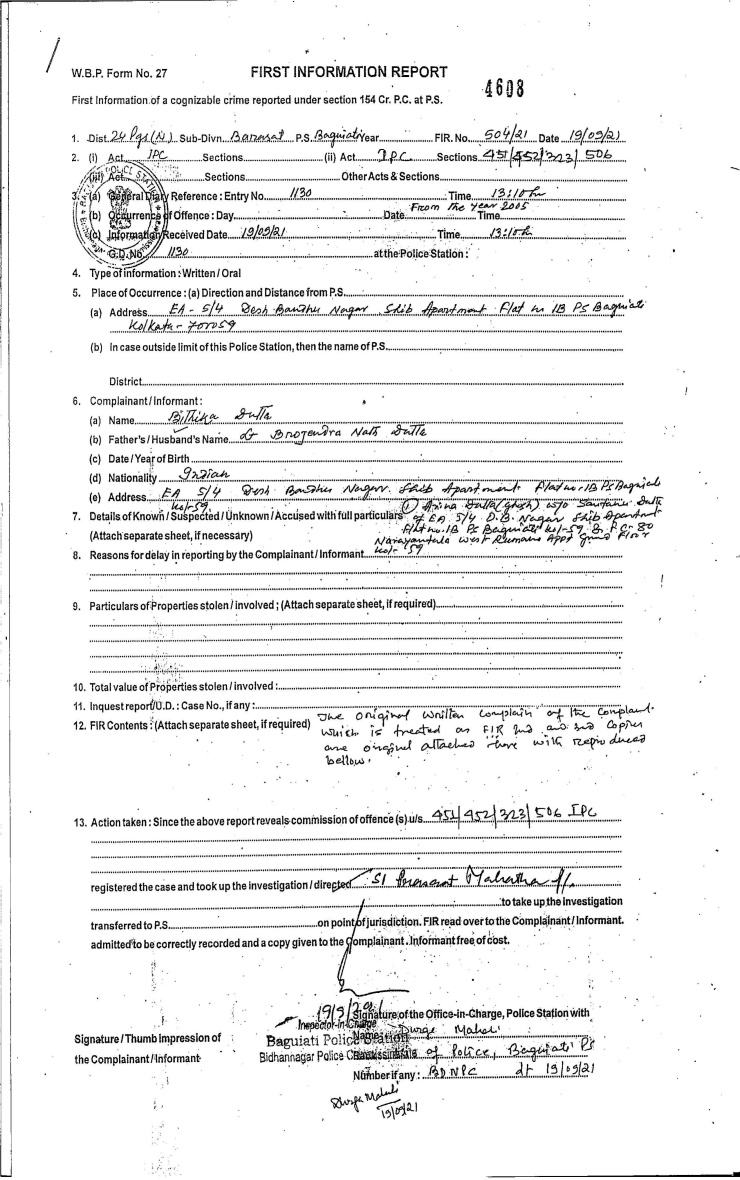 W.B.P. Form No. 27 FIRST INFORMATION REPORT
4608
First Information of a cognizable crime reported under section 154 Cr. P.C. at P.S.
1. Dist. 24 Pgs (N) Sub-Divn. Barasat P.S. Baguiati Year FIR. No. 504/21 Date 19/09/21
2. (i) Act IPC Sections (ii) Act IPC Sections 451/452/323/506
(iii) Act Sections Other Acts & Sections
3. (a) General Diary Reference : Entry No. 1130 Time 13:10 hr
From the year 2005
(b) Occurrence of Offence : Day Date Time
(c) Information Received Date 19/09/21 Time 13:10 hr
G.D. No. 1130 at the Police Station :
4. Type of information : Written / Oral
5. Place of Occurrence : (a) Direction and Distance from P.S.
(a) Address EA - 5/4 Desh Bandhu Nagar Shib Apartment Flat no 1B PS Baguiati
Kolkata - 700059
(b) In case outside limit of this Police Station, then the name of P.S.
District
6. Complainant / Informant :
(a) Name Bithika Dutta
(b) Father's / Husband's Name Brojendra Nath Dutta
(c) Date / Year of Birth
(d) Nationality Indian
(e) Address EA 5/4 Desh Bandhu Nagar Shib Apartment Flat no. 1B PS Baguiati
Kol-59
7. Details of Known / Suspected / Unknown / Accused with full particulars (1) Dutta (ghosh) w/o Dutta
of EA 5/4 D.B. Nagar Shib Apartment
(Attach separate sheet, if necessary) Flat no. 1B PS Baguiati Kol-59 80
Narayantala West Appt Floor
8. Reasons for delay in reporting by the Complainant / Informant Kol- 59
9. Particulars of Properties stolen / involved ; (Attach separate sheet, if required)
10. Total value of Properties stolen / involved :
11. Inquest report/U.D. : Case No., if any :
12. FIR Contents : (Attach separate sheet, if required) The original written complain of the complaint
which is treated as FIR 2nd and 3rd copies
are original attached here with reproduced
bellow.
13. Action taken : Since the above report reveals commission of offence (s) u/s. 451/452/323/506 IPC
registered the case and took up the investigation / directed SI Mahatha
to take up the investigation
transferred to P.S. on point of jurisdiction. FIR read over to the Complainant / Informant.
admitted to be correctly recorded and a copy given to the Complainant . Informant free of cost.
19/9/2021 Signature of the Office-in-Charge, Police Station with
Inspector-in-Charge
Signature / Thumb Impression of Baguiati Police Station Name
the Complainant / Informant Bidhannagar Police of Police, Baguiati PS
Number if any : BDNPC dt 19/09/21
19/09/21